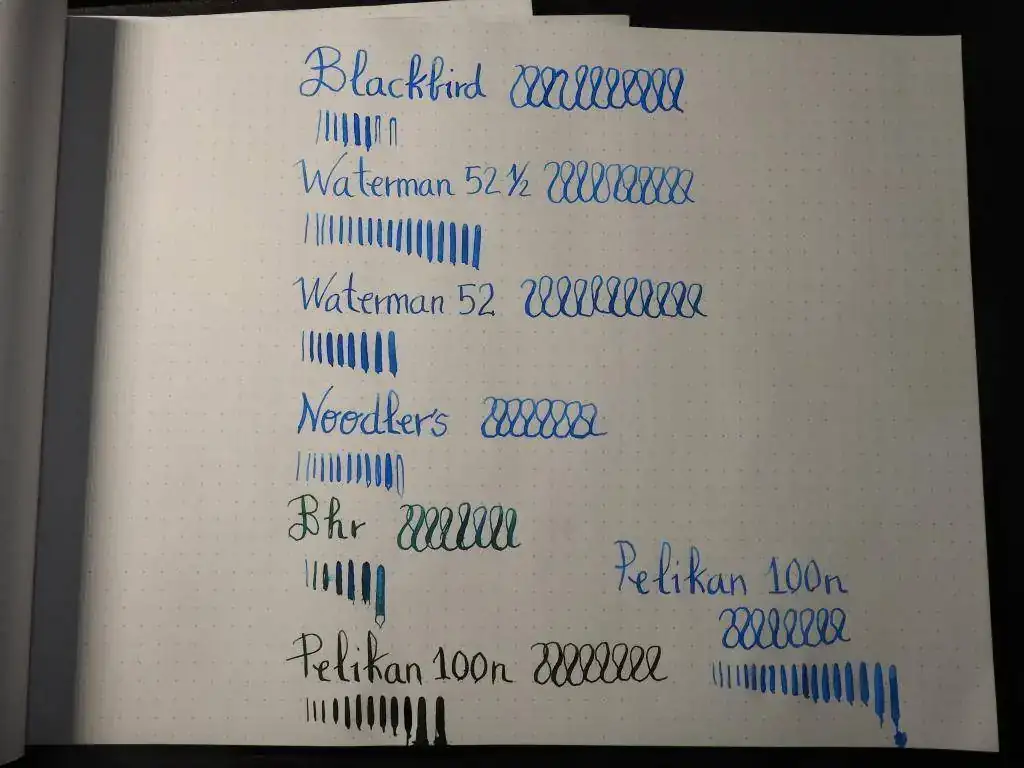 Blackbird
Waterman 52 ½
Waterman 52
Noodlers
Bhr
Pelikan 100n
Pelikan 100n